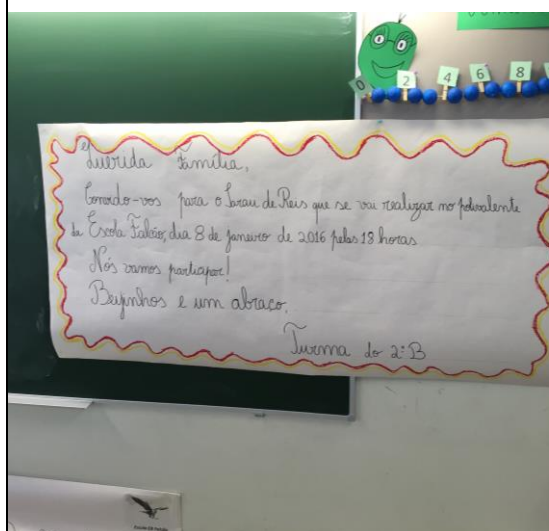 0 2 4 6 8
Querida Família,
Convido-vos para o Sarau de Reis que se vai realizar no polivalente
da Escola Falcão, dia 8 de janeiro de 2016 pelas 18 horas.
Nós vamos participar!
Beijinhos e um abraço,
Turma do 2º B